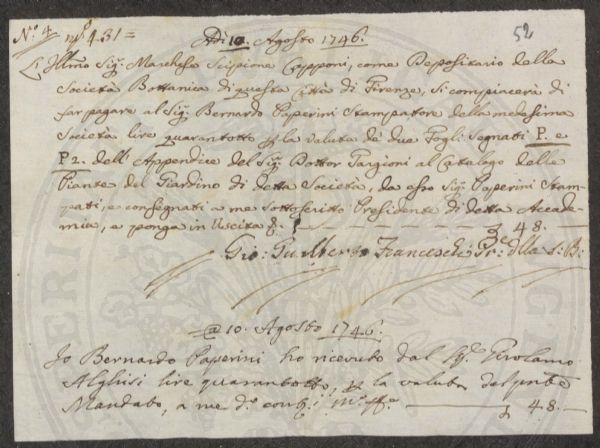 N.º 4 nº 431= Adì 10. Agosto 1746. 52
L'Illmo Sig: Marchese Scipione Capponi, come Depositario della
Società Bottanica di questa Città di Firenze, si compiacerà di
far pagare al Sig: Bernardo Paperini Stampatore della medesima
Società lire quarantotto p la valuta de' due Fogli segnati P. e
P2. dell'Appendice del Sig: Dottor Targioni al Catalogo delle
Piante del Giardino di detta Società, da esso Sig: Paperini Stam-
pati, e consegnati a me Sottoscritto Presidente di detta Accade-
mia, e ponga in Uscita 48.
Gio: Gualberto Franceschi Pr: dlla S: B:
@ 10. Agosto 1746.
Io Bernardo Paperini ho ricevuto dal Sig. Girolamo
Alghisi lire quarantotto, p la valuta del pnte
Mandato, a me dº 48.